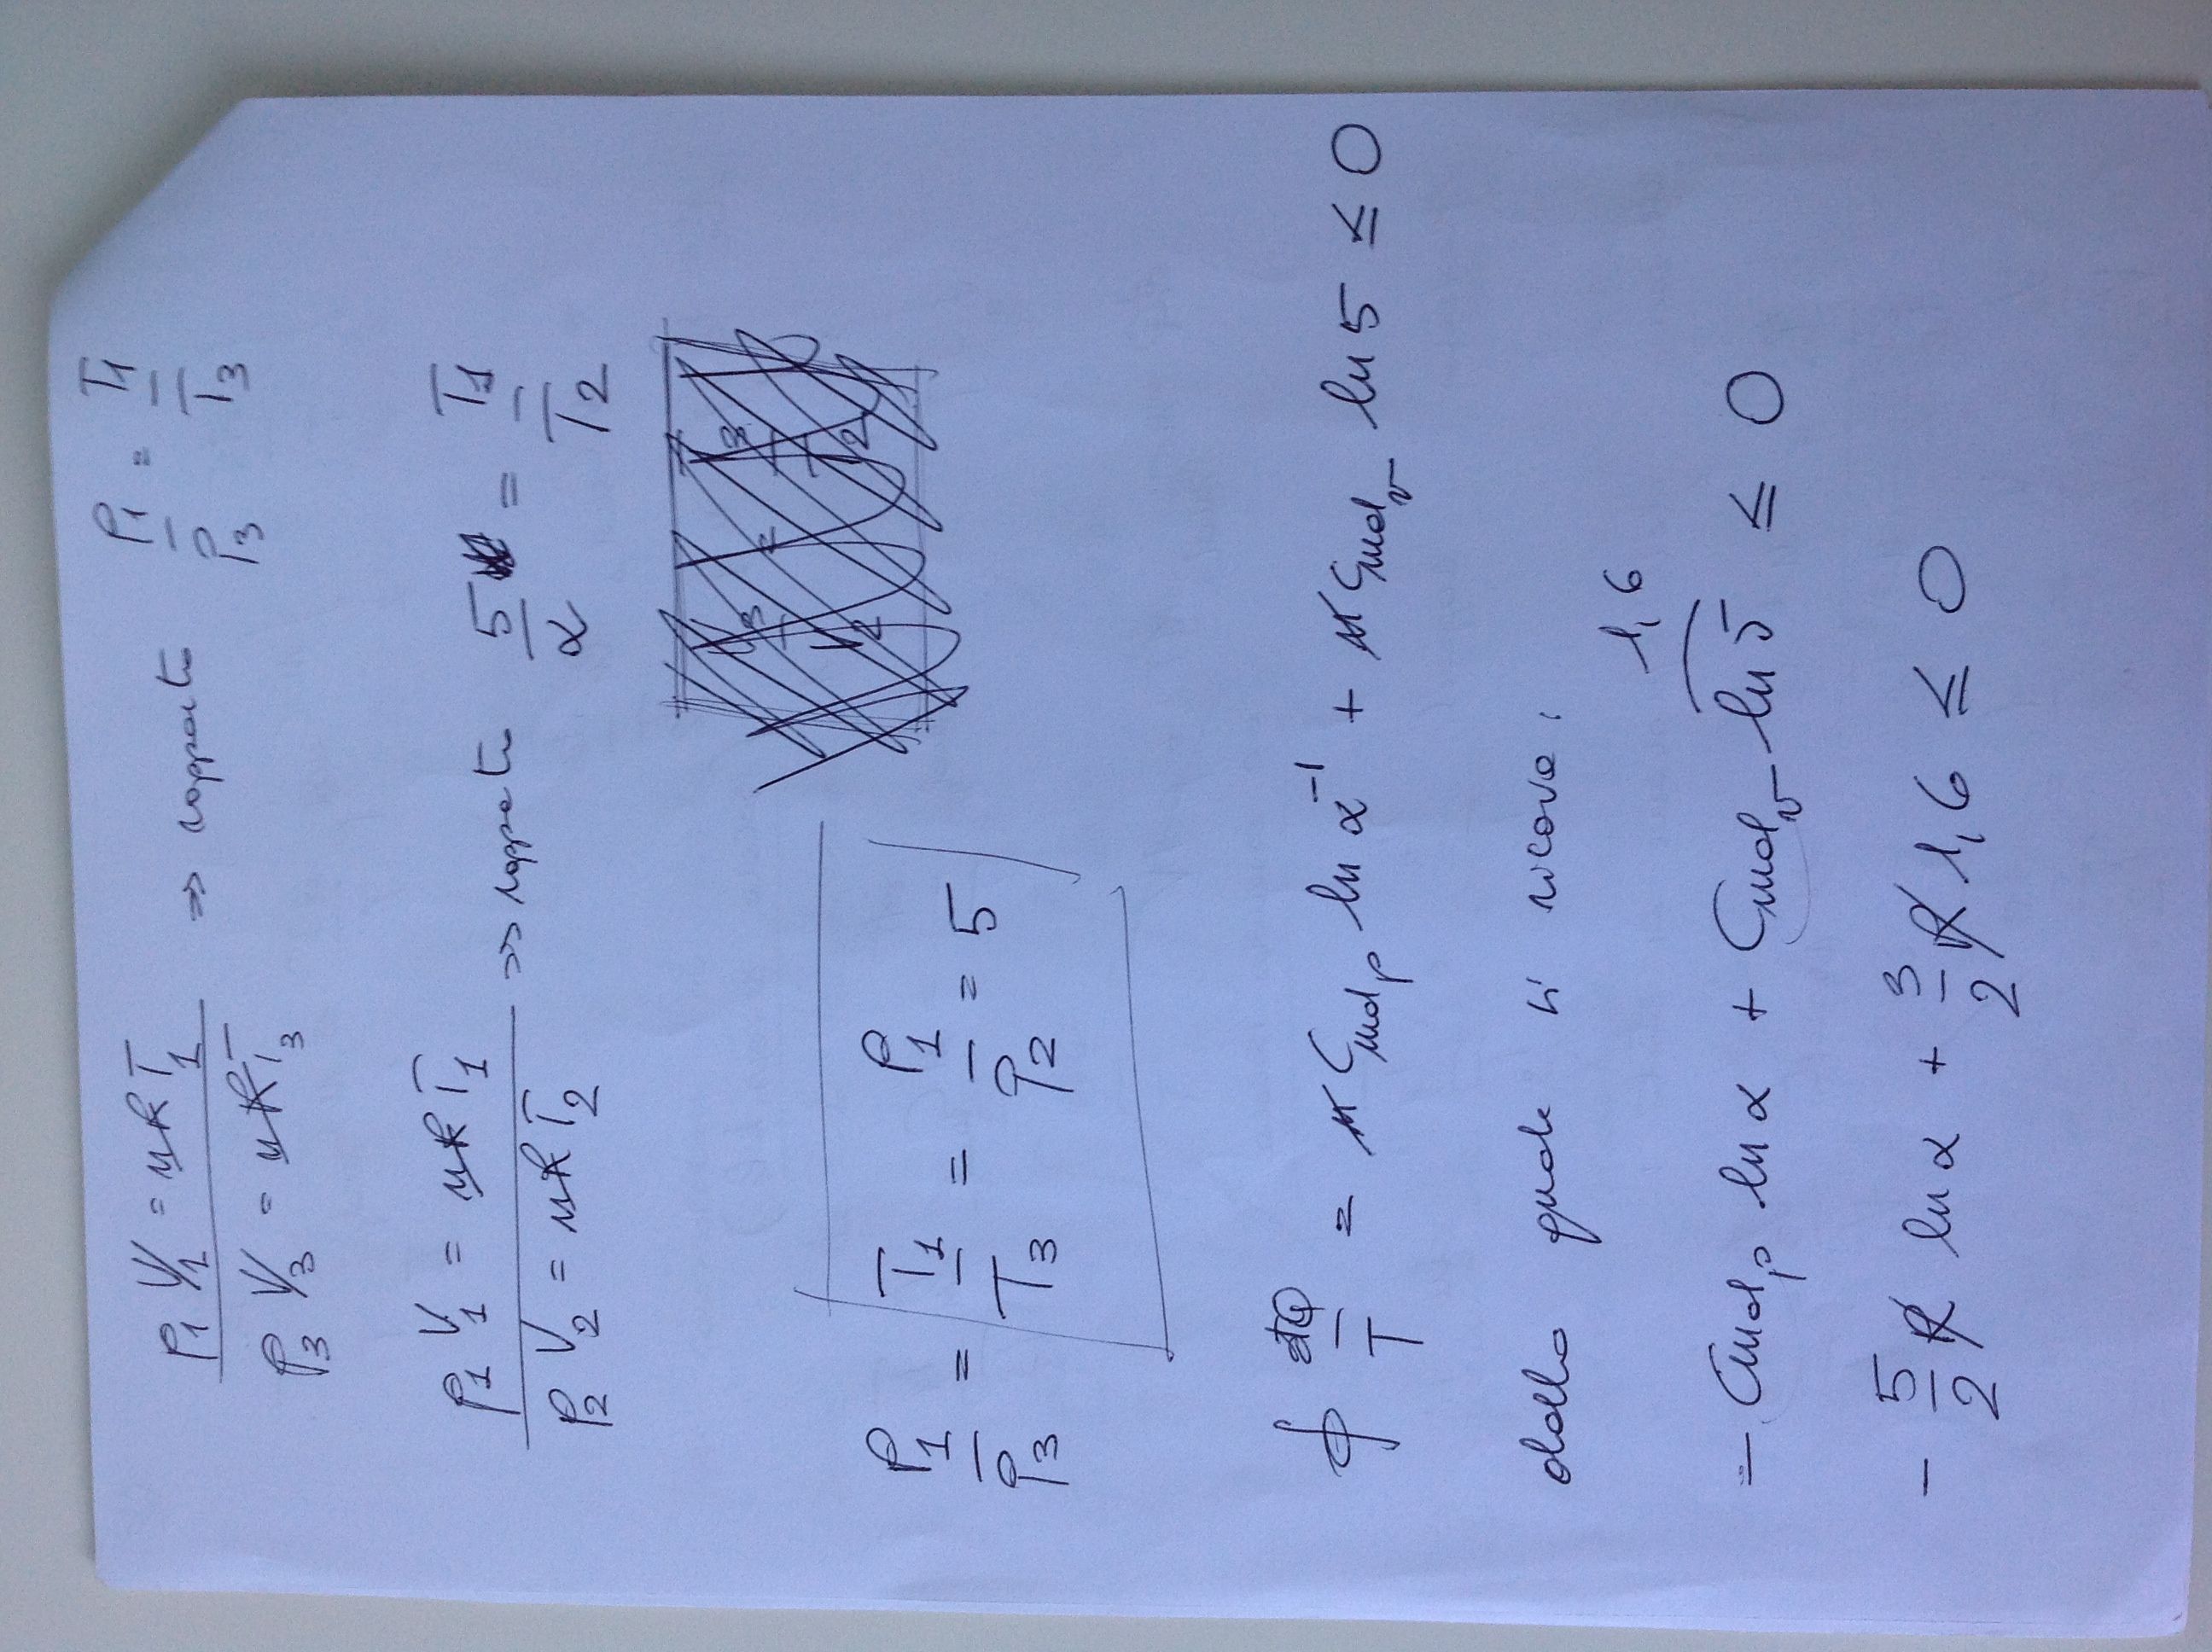 p₁ V₁ = nRT₁ => rapporto p₁/p₃ = T₁/T₃
p₃ V₃ = nRT₃
p₁ V₁ = nRT₁ => rapporto 5/α = T₁/T₂
p₂ V₂ = nRT₂
p₁/p₃ = T₁/T₃ = p₁/p₂ = 5
∮ dQ/T = n Cmolₚ ln α⁻¹ + n Cmolᵥ ln 5 ≤ 0
dalla quale si ricava:
1,6
- Cmolₚ ln α + Cmolᵥ ln 5 ≤ 0
- 5/2 R ln α + 3/2 R 1,6 ≤ 0